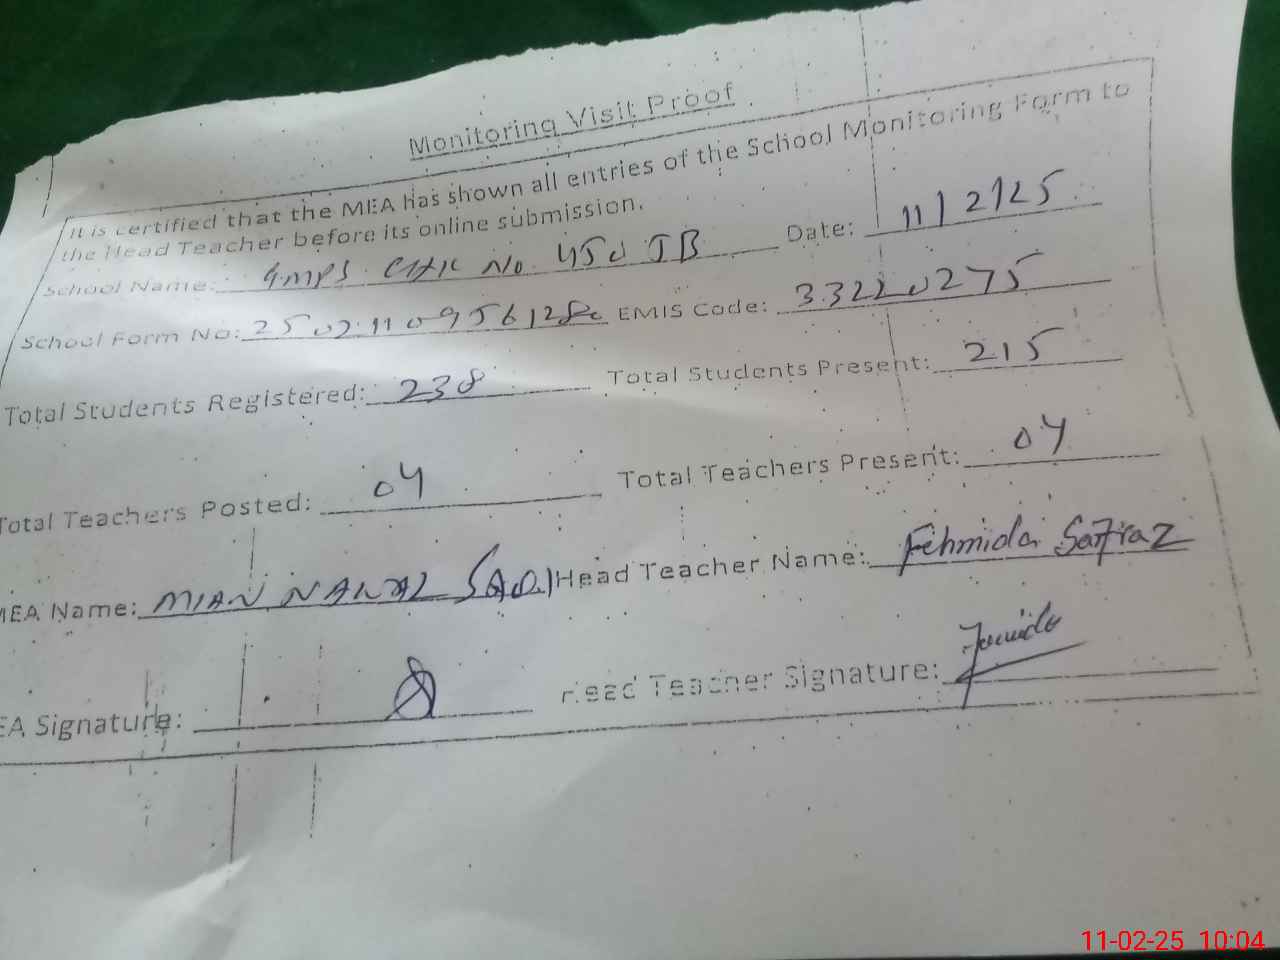 Monitoring Visit Proof
It is certified that the MEA has shown all entries of the School Monitoring Form to
the Head Teacher before its online submission.
School Name: GMPS CHK No. 450 JB Date: 11/2/25
School Form No: EMIS Code: 33220275
Total Students Registered: 238 Total Students Present: 215
Total Teachers Posted: 04 Total Teachers Present: 04
MEA Name: MIAN Head Teacher Name: Fehmida Safraz
EA Signature: Head Teacher Signature:
11-02-25 10:04